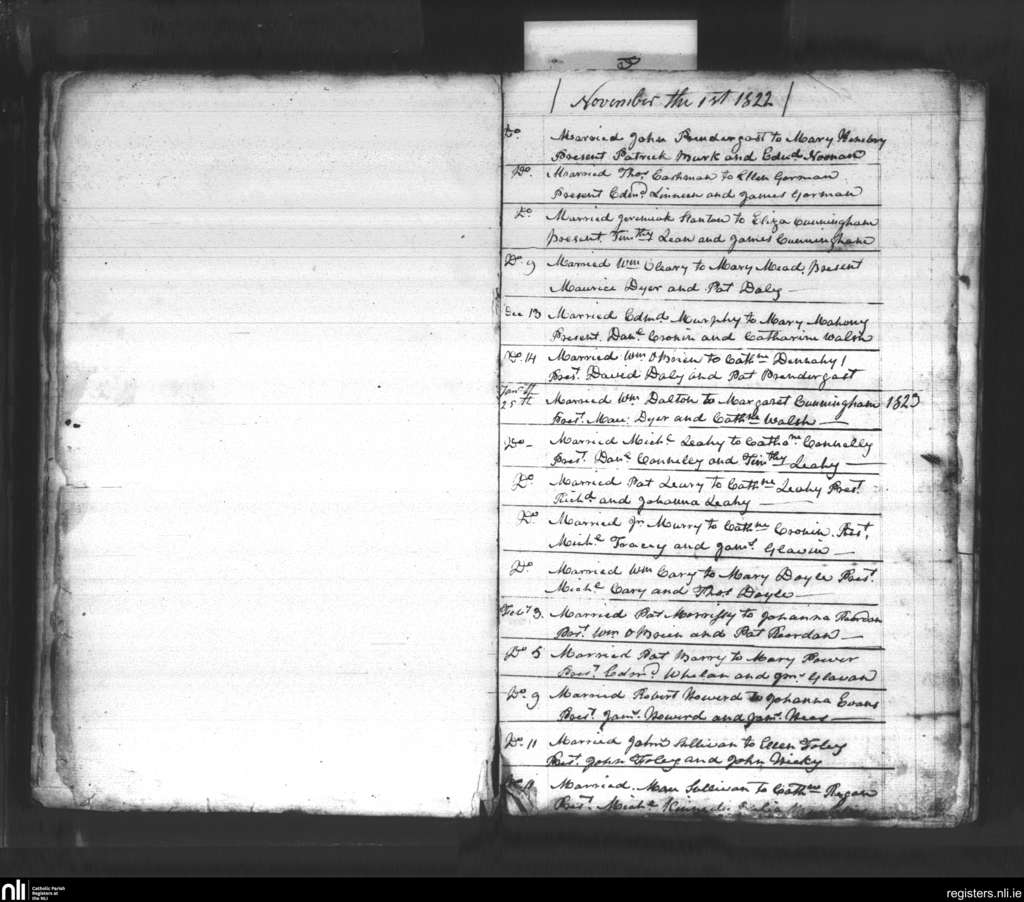 November the 1st 1822
Do Married John Prendergast to Mary Henebry
Present Patrick Burk and Edmd Noonan
Do. Married Thos Cashman to Ellen Gorman
Present Edmd Linneen and James Gorman
Do Married Jeremiah Stanton to Eliza Cunningham
present Timthy Lean and James Cunningham
Do. 9 Married Wm Oleary to Mary Mead, present
Maurice Dyer and Pat Daly —
Dec 13 Married Edmd. Murphy to Mary Mahony
Present Danl Cronin and Catharine Walsh
Do. 14 Married Wm OBrien to Cathne Dennahy
Prest. David Daly and Pat Prendergast
Jany
25th Married Wm Dalton to Margaret Cunningham 1823
Prest. Mau: Dyer and Cathne Walsh —
Do — Married Michl Leahy to Catharne Connelly
Prest. Danl Connelly and Timthy Leahy —
Do Married Pat Leary to Cathne Leahy Prest
Richd and Johanna Leahy —
Do. Married Jn Murry to Cathne Cronin Prest.
Michl Tracey and Jams. Glavin —
Do. Married Wm Cary to Mary Doyle Prest.
Michl Cary and Thos Doyle —
Feby 3. Married Pat Morrissy to Johanna Reordan
Prst. Wm OBrien and Pat Reordan —
Do 5 Married Pat Barry to Mary Power
Prest. Edmd Whelan and Jms Glavan
Do. 9 Married Robert Howerd to Johanna Evans
Prest. Jams. Howerd and Jams. Hees —
Do. 11 Married John Sullivan to Ellen Foley
Prest. John Foley and John Hicky
Married Mau Sullivan to Cathne Regan
Prest. Michl
nli
Catholic Parish
Registers at
the NLI
registers.nli.ie